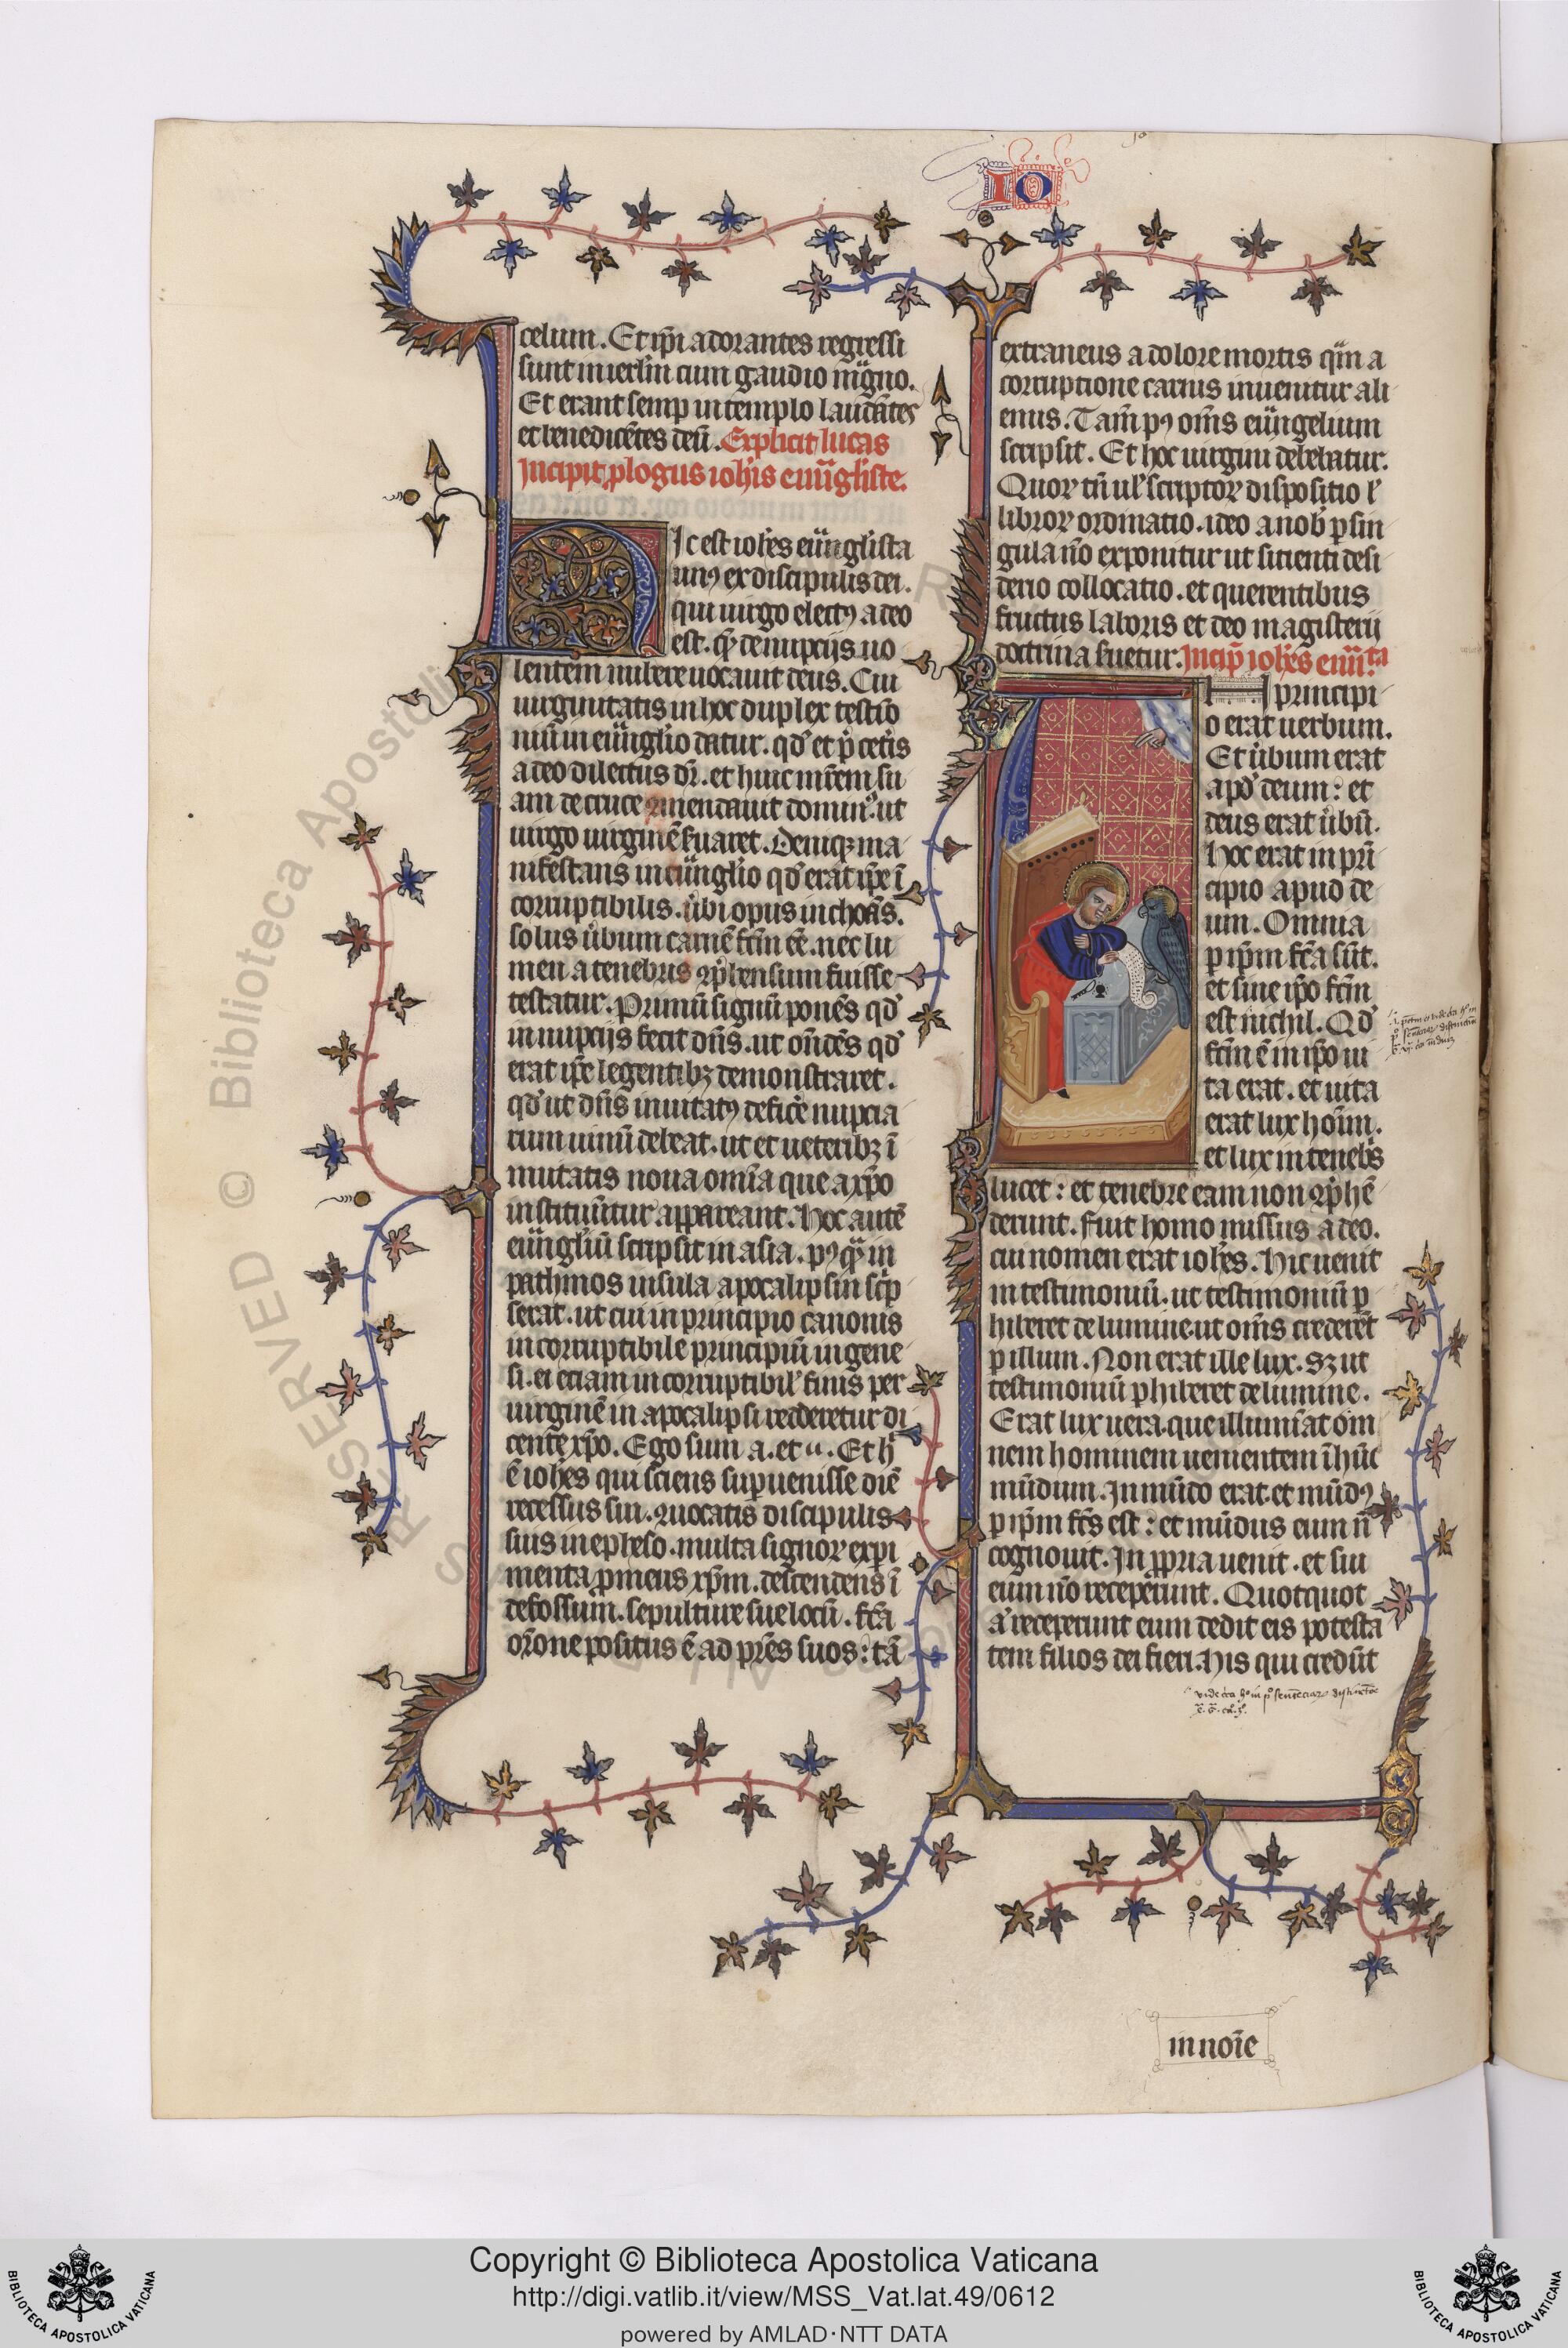 IO
celum. Et ip̄i adorantes regressi
sunt in ierl̄m cum gaudio mͣgno.
Et erant semp̱ in templo laudātes
et benedicētes deū. Explicit lucas
Incipit ꝓlogus ioh̄is euͣngl̄iste.
Hic est ioh̄es euͣngl̄ista
unꝰ ex discipulis dei.
qui uirgo electꝰ a deo
est. q̄ de nupcijs uo
lentem nubere uocauit deus. Cui
uirginitatis in hoc duplex testīo
niū in euͣnglio datur. qd̓ et p̄ cet̓is
a deo dilectus dr̄. et huic mr̄em su
am de cruce ꝯmendauit domin̓. ut
uirgo uirginē s̓uaret. Deniqꝫ ma
nifestans in euͣnglio qd̓ erat ip̄e ī
corruptibilis. u̓bi opus inchoās.
solus u̓bum carnē fc̄m eē. nec lu
men a tenebris ꝯp̄hensum fuisse
testatur. Primū signū ponēs qd̓
in nupcijs fecit dn̄s. ut on̄dēs qd̓
erat ip̄e legentibꝫ demonstraret.
qd̓ ut dn̄s inuitatꝰ defice̓ nupcia
rum uinū debeat. ut et ueteribꝫ ī
mutatis noua om̄ia que a xp̄o
instituūtur appareant. Hoc autē
euͣngliū scripsit in asia. pꝰqͣm in
pathmos insula apocalipsin scͥp
serat. ut cui in principio canonis
in corruptibile principiū in gene
si. ei eciam in corruptibil̓ finis per
uirginē in apocalipsi redderetur di
cente xp̄o. Ego sum a. et ω. Et hͥ
ē ioh̄es qui sciens sup̱uenisse diē
recessus sui. ꝯuocatis discipulis
suis in epheso. multa signoꝝ exp̱i
menta ꝓmens xp̄m. descendens ī
defossum. sepulture sue locū. fc̄a
or̄one positus ē ad pr̄es suos: tā
extraneus a dolore mortis qͣm a
corruptione carnis inuenitur ali
enus. Tam̄ pꝰ om̄s euͣngelium
scripsit. Et hoc uirgini debebatur.
Quoꝝ tn̄ ul̓ scriptoꝝ dispositio l̓
libroꝝ ordinatio. ideo a nob̓ p̱ sin
gula nō exponitur ut scienti desi
derio collocatio. et querentibus
fructus laboris et deo magisterij
doctrina s̓uetur. Incip̄ ioh̄es euͣ̄ta
In principi
o erat uerbum.
Et u̓bum erat
apd̓ deum: et
deus erat u̓bū.
Hoc erat in prī
cipio apud de
um. Omnia
p̱ ip̄m fc̄a sūt.
et sine ip̄o fc̄m
est nichil. Qd̓
fc̄m ē in ip̄o ui
ta erat. et uita
erat lux hoīm.
et lux in tenebͥs
lucet: et tenebre eam non ꝯp̄hē
derunt. Fuit homo missus a deo.
cui nomen erat ioh̄es. Hic uenit
in testimoniū. ut testimoniū p̱
hiberet de lumine. ut om̄s crederēt
p̱ illum. Non erat ille lux. sꝫ ut
testimoniū p̱hiberet de lumine.
Erat lux uera. que illumīat om̄
nem hominem uenientem ī hūc
mūdum. In mūdo erat. et mūdꝰ
p̱ ip̄m fc̄s est: et mūdus eum n̄
cognouit. In ꝓpria uenit. et sui
eum nō recepe̓runt. Quotquot
a̓ receperunt eum dedit eis potesta
tem filios dei fieri. His qui credūt
in noīe
RESERVED © Biblioteca Apostolica
Copyright © Biblioteca Apostolica Vaticana
http://digi.vatlib.it/view/MSS_Vat.lat.49/0612
powered by AMLAD·NTT DATA
BIBLIOTECA APOSTOLICA VATICANA
BIBLIOTECA APOSTOLICA VATICANA